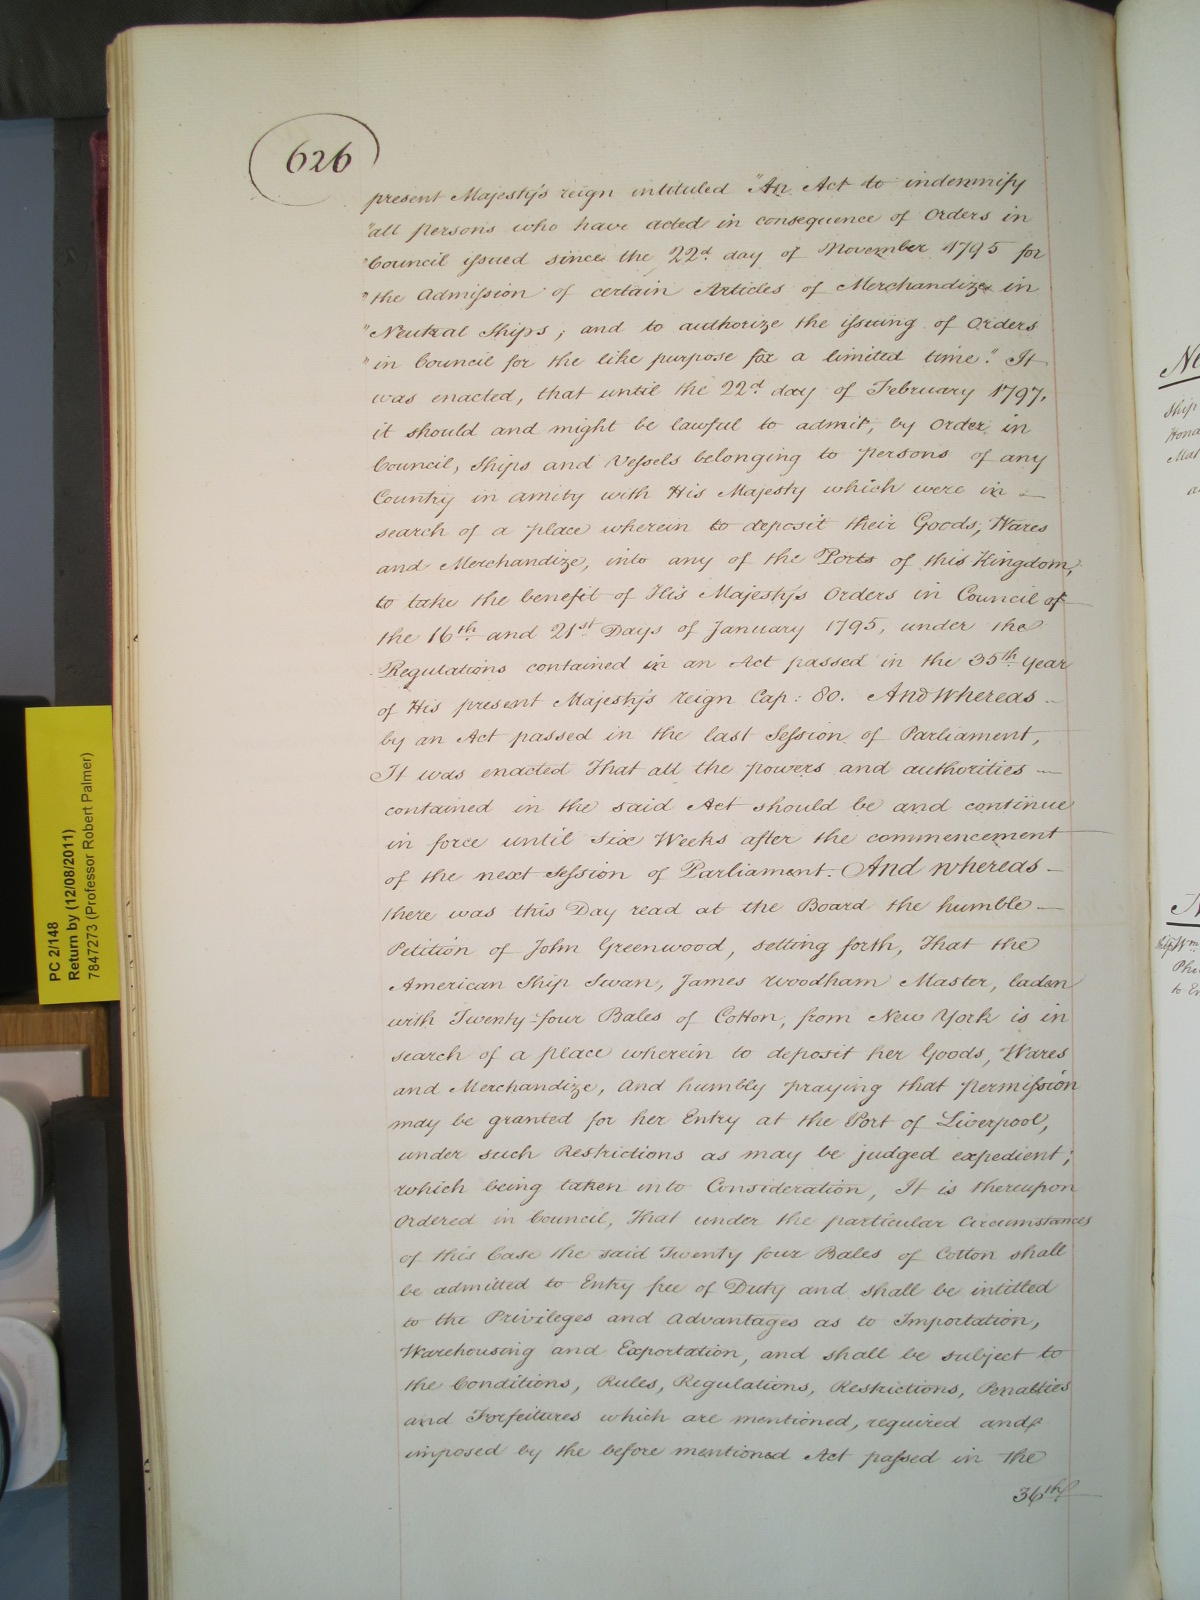 626
present Majesty's reign intituled "An Act to indemnify
"all persons who have acted in consequence of Orders in
"Council issued since the 22d. day of November 1795 for
"the Admission of certain Articles of Merchandize in
"Neutral Ships; and to authorize the issuing of Orders
"in Council for the like purpose for a limited time." It
was enacted, that until the 22d. day of February 1797,
it should and might be lawful to admit, by Order in
Council, Ships and Vessels belonging to persons of any
Country in amity with His Majesty which were in
search of a place wherein to deposit their Goods, Wares
and Merchandize, into any of the Ports of this Kingdom,
to take the benefit of His Majesty's Orders in Council of
the 16th. and 21st. Days of January 1795, under the
Regulations contained in an Act passed in the 35th. year
of His present Majesty's reign Cap: 80. And Whereas
by an Act passed in the last Session of Parliament,
It was enacted That all the powers and authorities
contained in the said Act should be and continue
in force until Six Weeks after the commencement
of the next Session of Parliament. And whereas
there was this Day read at the Board the humble
Petition of John Greenwood, setting forth, That the
American Ship Swan, James Woodham Master, laden
with Twenty-four Bales of Cotton, from New York is in
search of a place wherein to deposit her Goods, Wares
and Merchandize, And humbly praying that permission
may be granted for her Entry at the Port of Liverpool,
under such Restrictions as may be judged expedient;
which being taken into Consideration, It is thereupon
Ordered in Council, That under the particular Circumstances
of this Case the said Twenty four Bales of Cotton shall
be admitted to Entry free of Duty and shall be intitled
to the Privileges and Advantages as to Importation,
Warehousing and Exportation, and shall be subject to
the Conditions, Rules, Regulations, Restrictions, Penalties
and Forfeitures which are mentioned, required and
imposed by the before mentioned Act passed in the
36th.
PC 2/148
Return by (12/08/2011)
7847273 (Professor Robert Palmer)
Ship